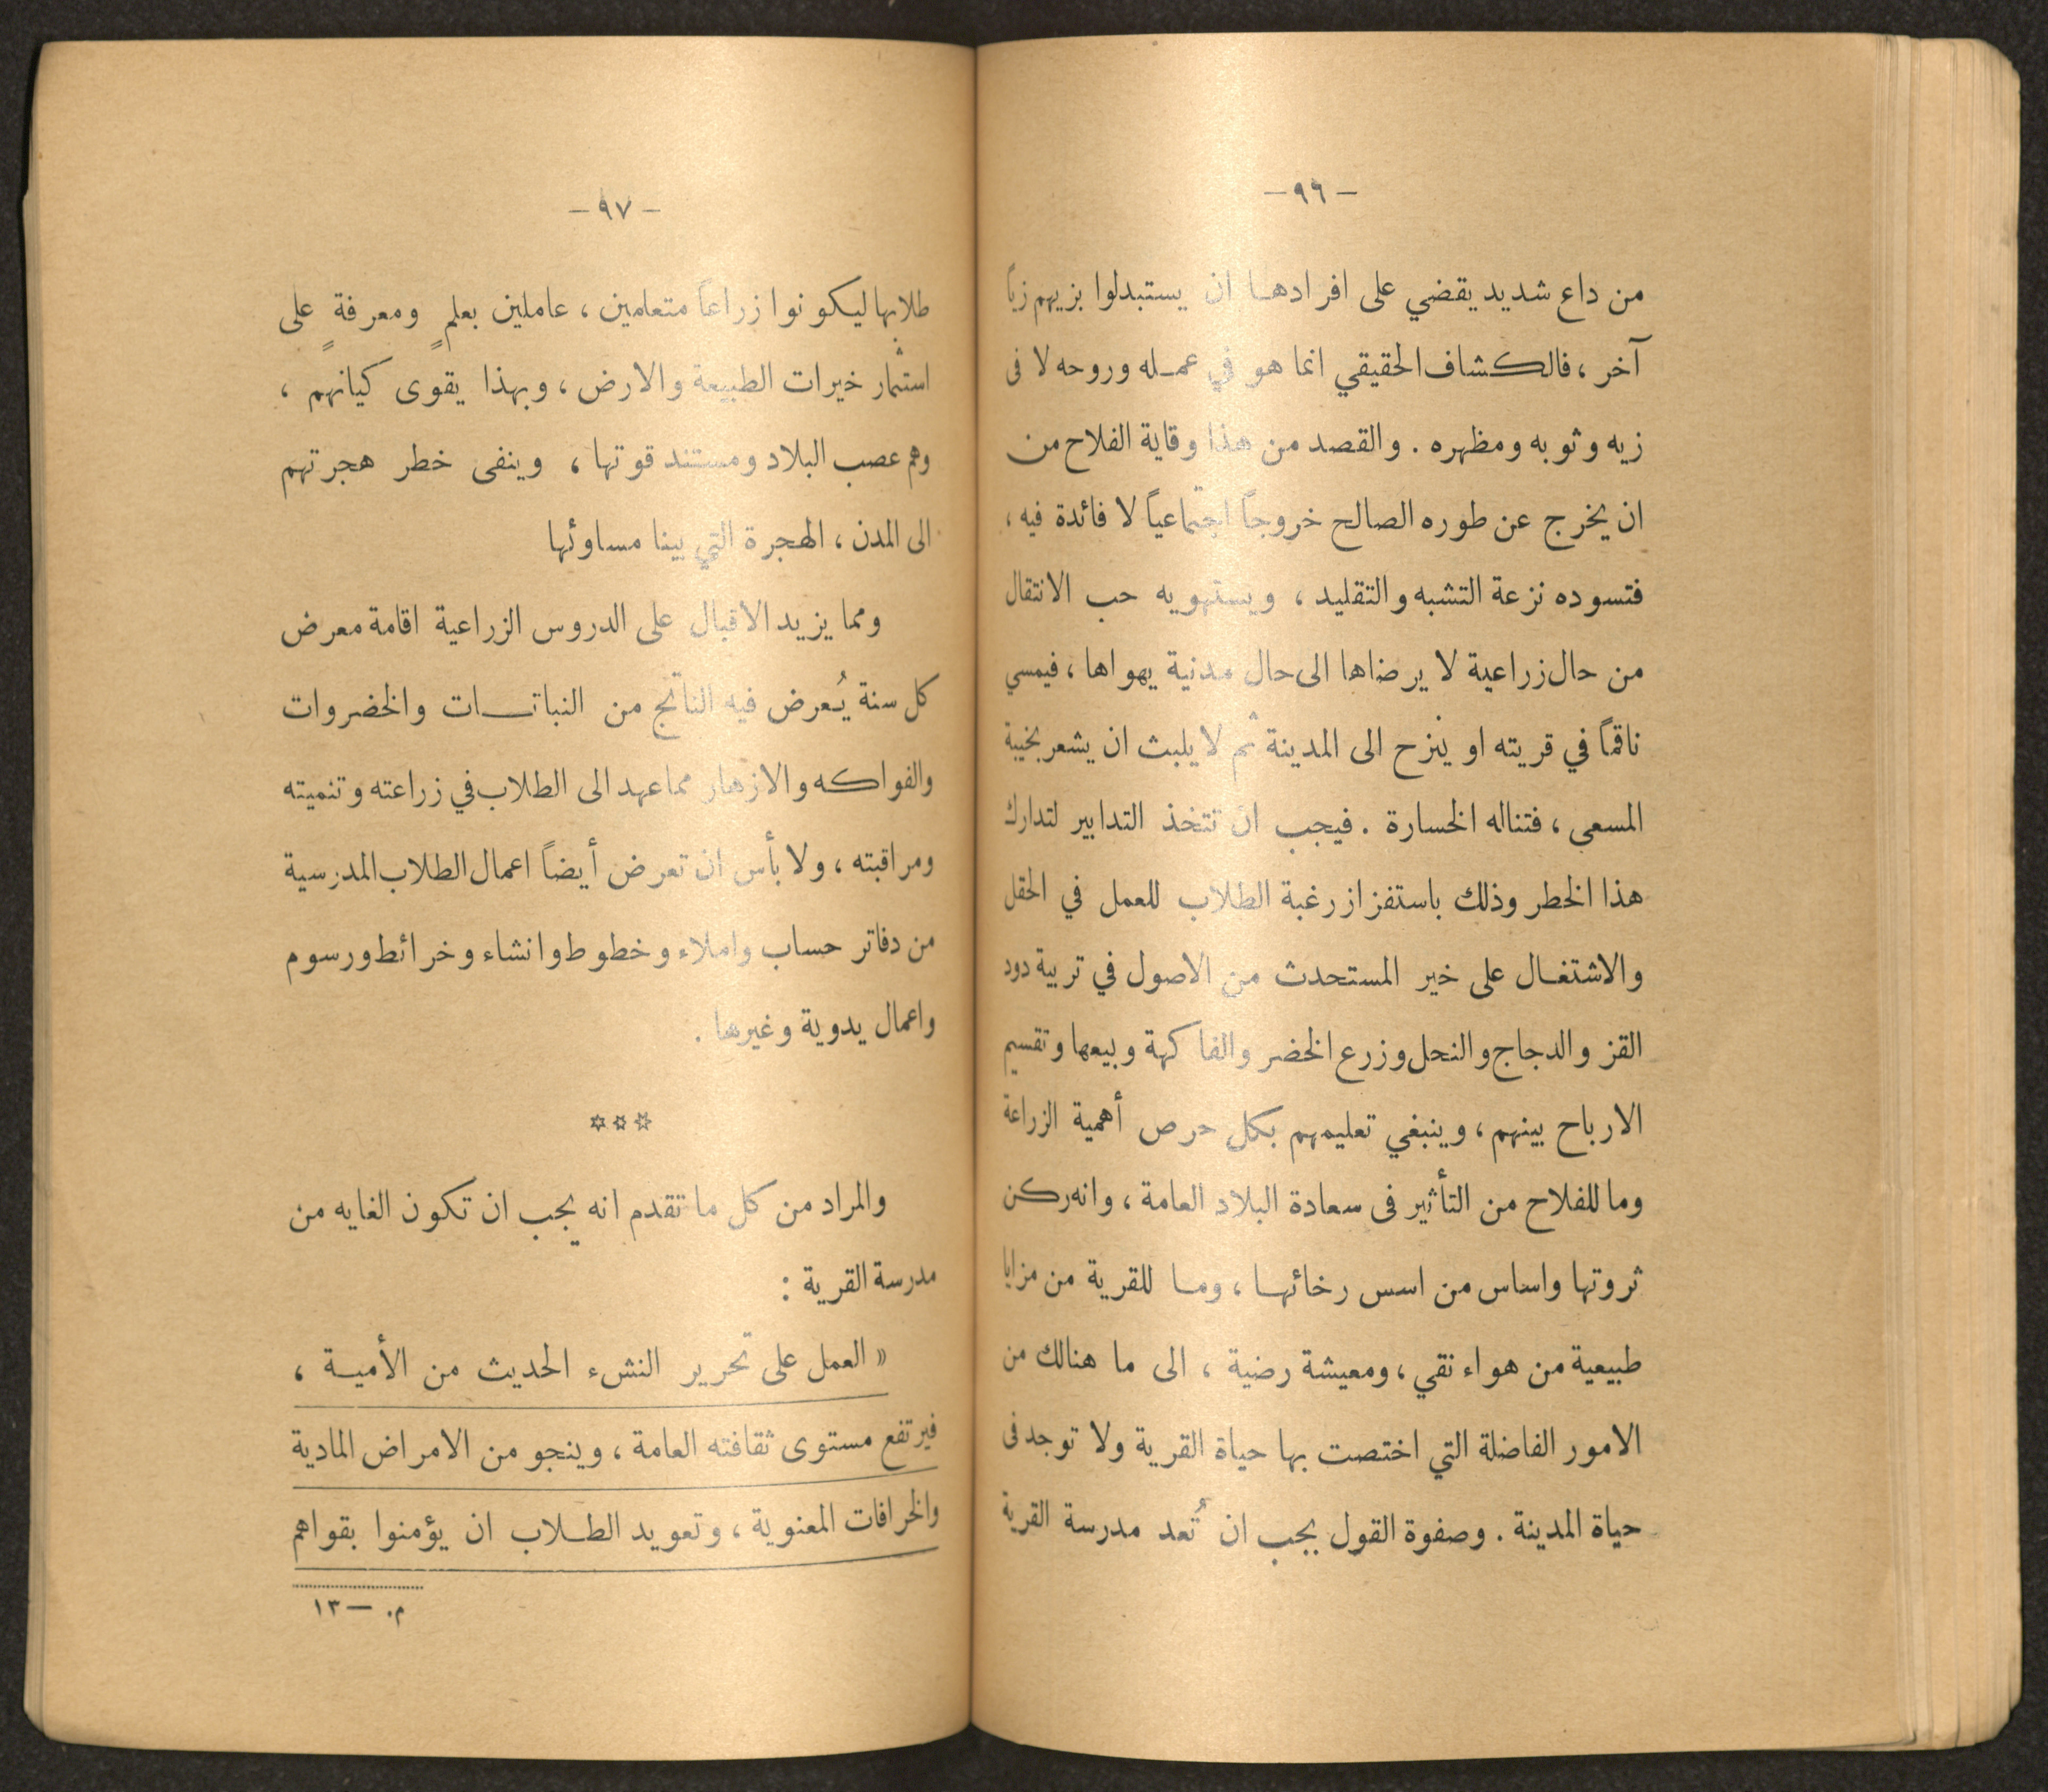 — ٩٦ —
من داع شديد يقضي على افرادها ان يستبدلوا بزيهم زياً
آخر ، فالكشاف الحقيقي انما هو في عمله وروحه لا فى
زيه وثوبه ومظهره . والقصد من هذا وقاية الفلاح من
ان يخرج عن طوره الصالح خروجاً اجتماعياً لا فائدة فيه ،
فتسوده نزعة التشبه والتقليد ، ويستهويه حب الانتقال
من حال زراعية لا يرضاها الى حال مدنية يهواها ، فيمسي
ناقماً في قريته او ينزح الى المدينة ثم لا يلبث ان يشعر بخيبة
المسعى ، فتناله الخسارة . فيجب ان تتخذ التدابير لتدارك
هذا الخطر وذلك باستفزاز رغبة الطلاب للعمل في الحقل
والاشتغال على خير المستحدث من الاصول في تربية دود
القز والدجاج والنحل وزرع الخضر والفاكهة وبيعها وتقسيم
الارباح بينهم ، وينبغي تعليمهم بكل حرص أهمية الزراعة
وما للفلاح من التأثير فى سعادة البلاد العامة ، وانه ركن
ثروتها واساس من اسس رخائها ، وما للقرية من مزايا
طبيعية من هواء نقي ، ومعيشة رضية ، الى ما هنالك من
الامور الفاضلة التي اختصت بها حياة القرية ولا توجد فى
حياة المدينة . وصفوة القول يجب ان تُعد مدرسة القرية
— ٩٧ —
طلابها ليكونوا زراعاً متعلمين ، عاملين بعلمٍ ومعرفةٍ على
استثمار خيرات الطبيعة والارض ، وبهذا يقوى كيانهم ،
وهم عصب البلاد ومستند قوتها ، وينفى خطر هجرتهم
الى المدن ، الهجرة التي بينا مساوئها
ومما يزيد الاقبال على الدروس الزراعية اقامة معرض
كل سنة يُعرض فيه الناتج من النباتات والخضروات
والفواكه والازهار مما عهد الى الطلاب في زراعته وتنميته
ومراقبته ، ولا بأس ان تعرض أيضاً اعمال الطلاب المدرسية
من دفاتر حساب واملاء وخطوط وانشاء وخرائط ورسوم
واعمال يدوية وغيرها .
☆☆☆
والمراد من كل ما تقدم انه يجب ان تكون الغايه من
مدرسة القرية :
« العمل على تحرير النشء الحديث من الأمية ،
فيرتفع مستوى ثقافته العامة ، وينجو من الامراض المادية
والخرافات المعنوية ، وتعويد الطلاب ان يؤمنوا بقواهم
م. — ١٣